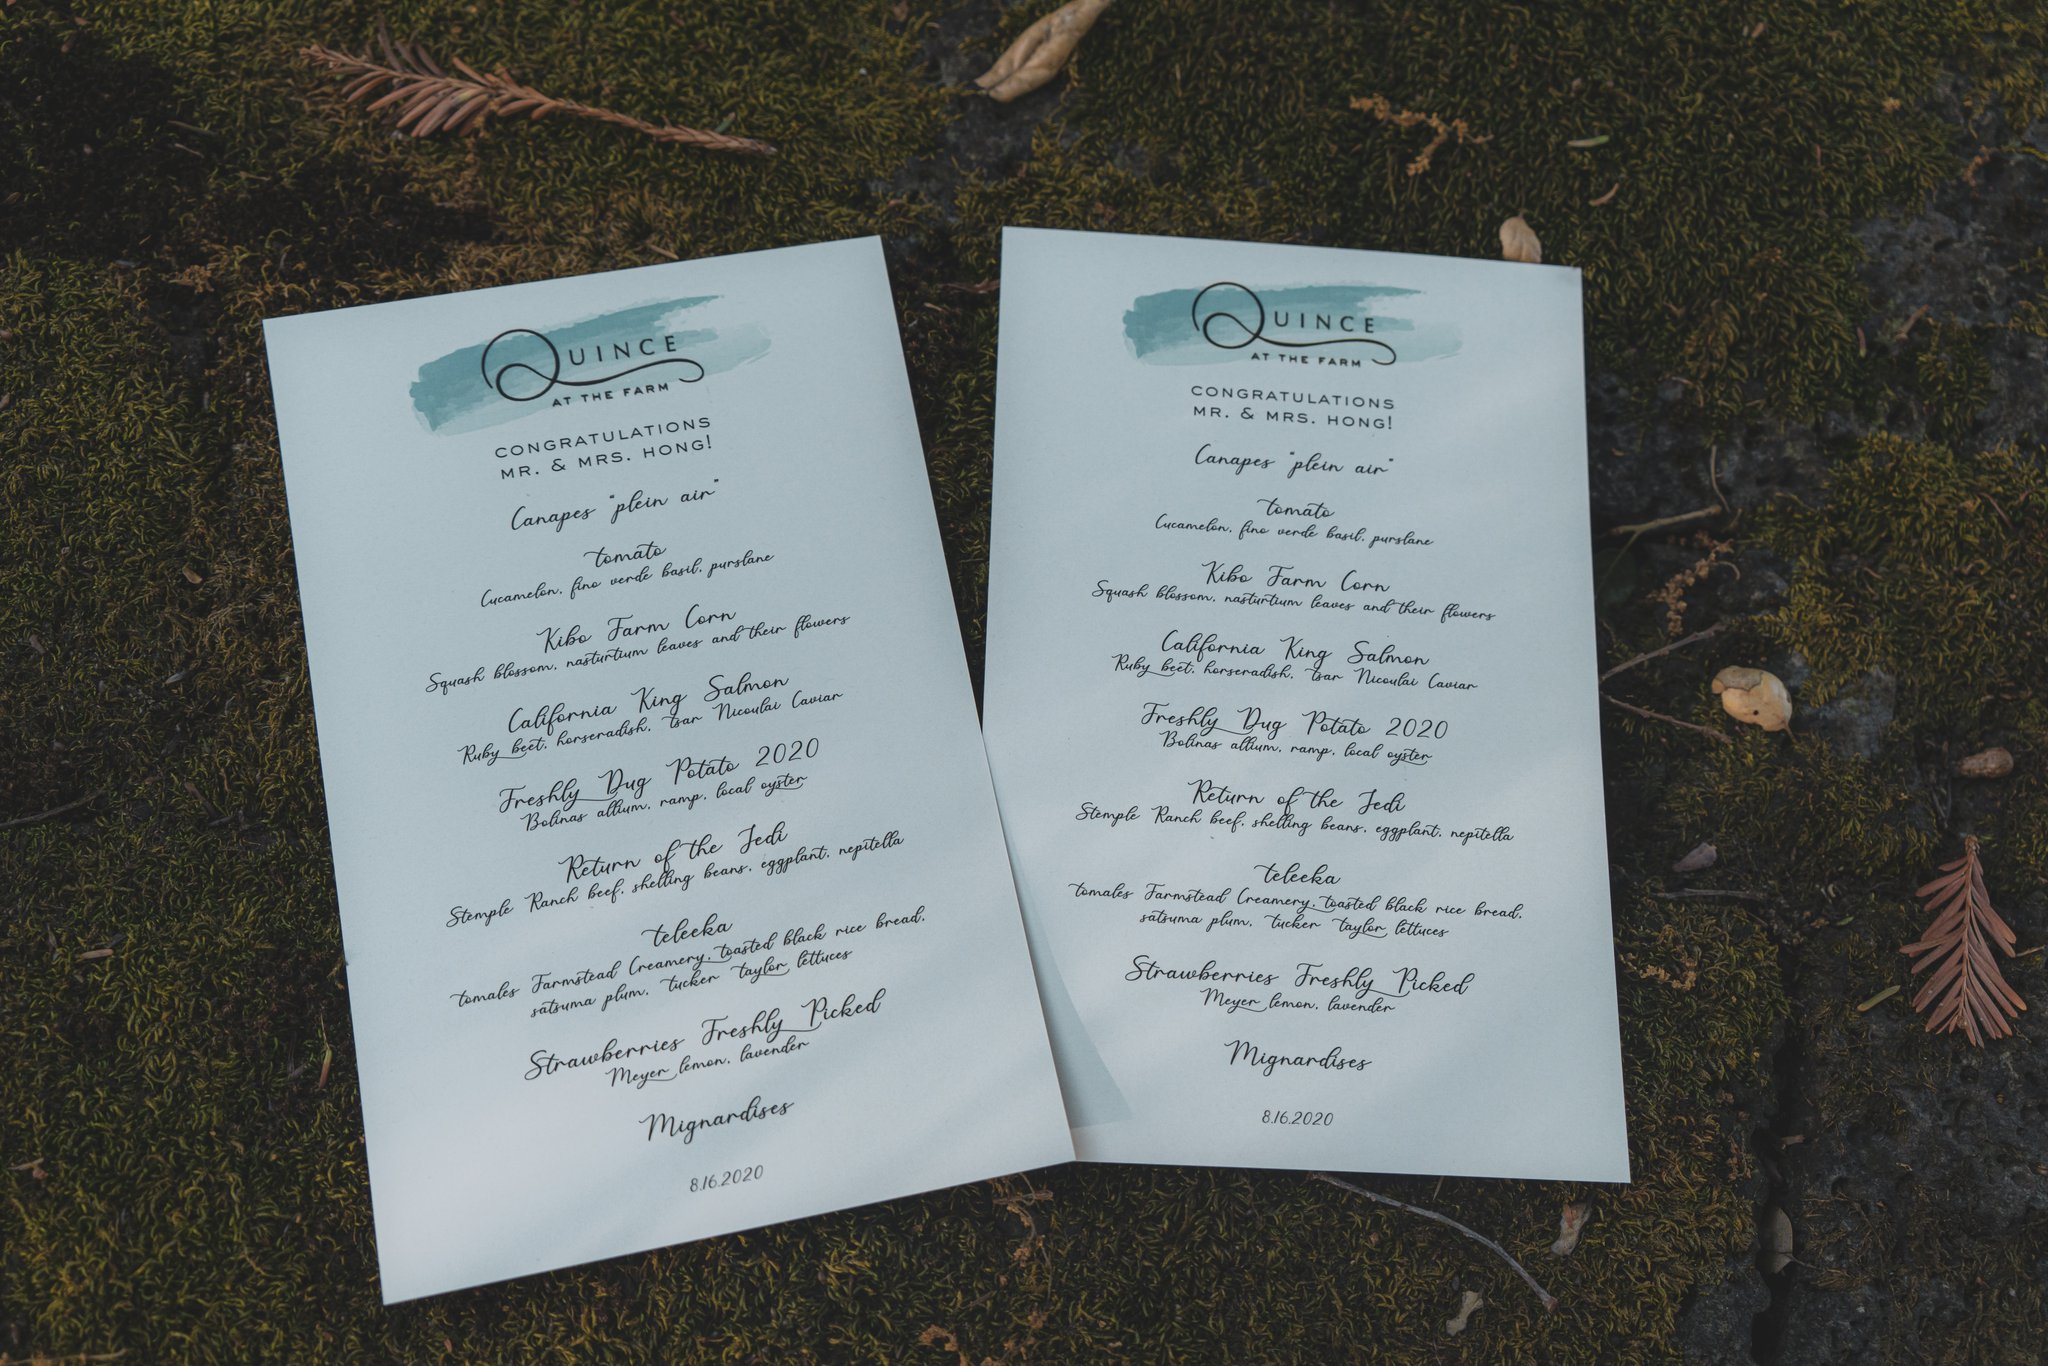 QUINCE
AT THE FARM
CONGRATULATIONS
MR. & MRS. HONG!
Canapes "plein air"
tomato
Cucamelon, fino verde basil, purslane
Kibo Farm Corn
Squash blossom, nasturtium leaves and their flowers
California King Salmon
Ruby beet, horseradish, tsar Nicoulai Caviar
Freshly Dug Potato 2020
Bolinas allium, ramp, local oyster
Return of the Jedi
Stemple Ranch beef, shelling beans, eggplant, nepitella
teleeka
tomales Farmstead Creamery, toasted black rice bread,
satsuma plum, tucker taylor lettuces
Strawberries Freshly Picked
Meyer lemon, lavender
Mignardises
8.16.2020
QUINCE
AT THE FARM
CONGRATULATIONS
MR. & MRS. HONG!
Canapes "plein air"
tomato
Cucamelon, fino verde basil, purslane
Kibo Farm Corn
Squash blossom, nasturtium leaves and their flowers
California King Salmon
Ruby beet, horseradish, tsar Nicoulai Caviar
Freshly Dug Potato 2020
Bolinas allium, ramp, local oyster
Return of the Jedi
Stemple Ranch beef, shelling beans, eggplant, nepitella
teleeka
tomales Farmstead Creamery, toasted black rice bread,
satsuma plum, tucker taylor lettuces
Strawberries Freshly Picked
Meyer lemon, lavender
Mignardises
8.16.2020